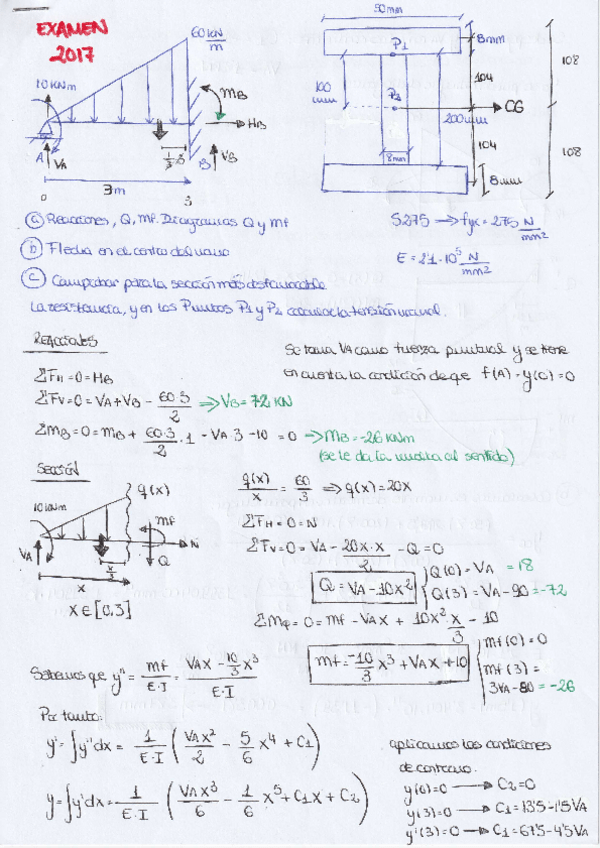 EXAMEN
2017
60 KN/m
10 KNm
MB
HB
A
VA
1/3·3
B
VB
0
3
3m
90mm
P1
8mm
104
108
100 mm
P2
CG
200mm
8mm
104
108
8mm
a) Reacciones, Q, Mf. Diagramas Q y Mf
b) Flecha en el centro del vano
c) Comprobar para la sección más desfavorable
la resistencia, y en los Puntos P1 y P2 calcular la tensión normal.
S.275 → fyk = 275 N/mm2
E = 2'1·10^5 N/mm2
REACCIONES
Se toma VA como fuerza puntual y se tiene
en cuenta la condición de que f(A) = y(0) = 0
ΣFH = 0 = HB
ΣFV = 0 = VA + VB - 60·3/2 ⇒ VB = 72 KN
ΣMB = 0 = MB + 60·3/2 · 1 - VA·3 - 10 = 0 → MB = -26 KNm
(se le da la vuelta al sentido)
SECCIÓN
q(x)
10 KNm
Mf
N
VA
x/3
Q
x
x∈[0,3]
q(x)/x = 60/3 ⇒ q(x) = 20x
ΣFH = 0 = N
ΣFV = 0 = VA - 20x·x/2 - Q = 0
Q = VA - 10x²
Q(0) = VA = 18
Q(3) = VA - 90 = -72
ΣMφ = 0 = Mf - VAx + 10x² x/3 - 10
Mf = -10/3 x³ + VAx + 10
Mf(0) = 0
Mf(3) =
3VA - 80 = -26
Sabemos que y'' = Mf/E·I = VAx - 10/3 x³/E·I
Por tanto:
y' = ∫y''dx = 1/E·I (VAx²/2 - 5/6 x⁴ + C1)
y = ∫y'dx = 1/E·I (VAx³/6 - 1/6 x⁵ + C1x + C2)
aplicamos las condiciones
de contorno.
y(0) = 0 → C2 = 0
y(3) = 0 → C1 = 13'5 - 1'5VA
y'(3) = 0 → C1 = 67'5 - 4'5VA